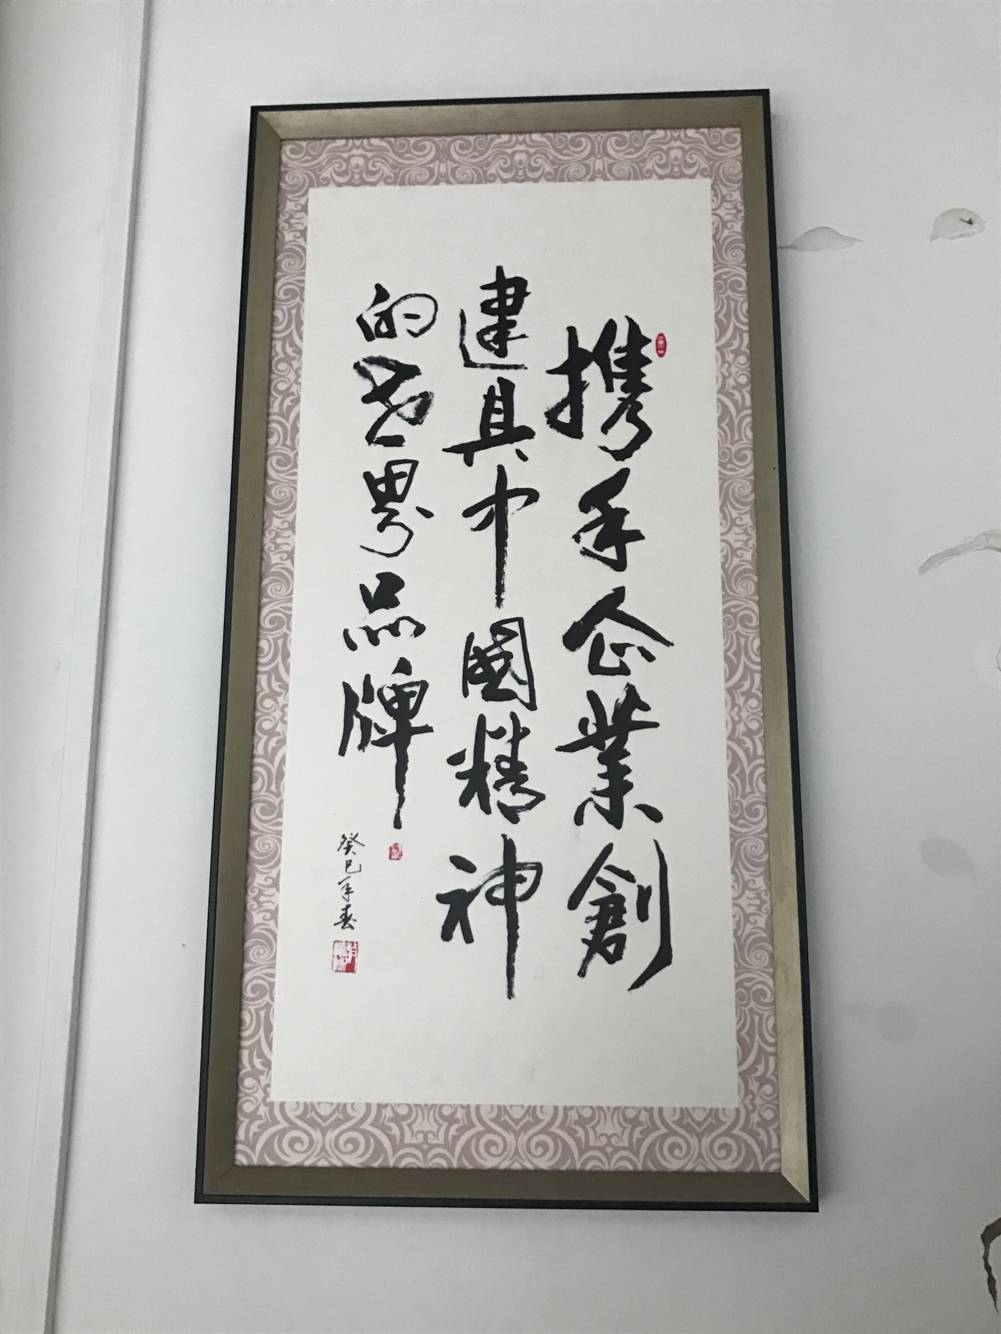 携手企業創
建具中國精神
的世界品牌
癸巳年春